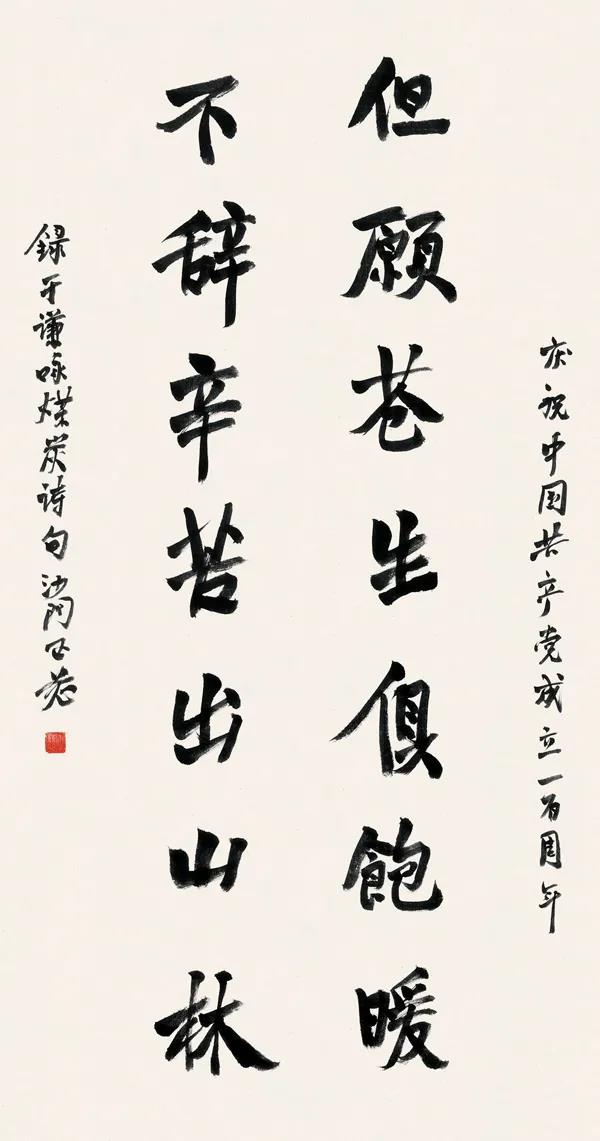 庆祝中国共产党成立一百周年
但願苍生俱飽暖
不辞辛苦出山林
録于谦咏煤炭诗句 沙门正慈